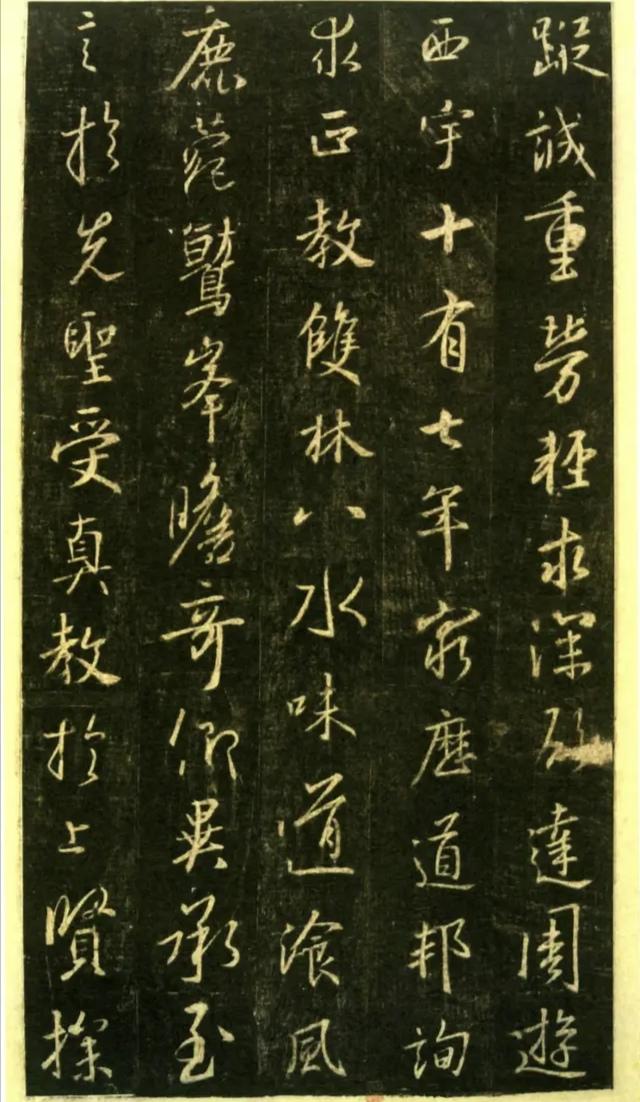 蹤誠重勞輕求深欲達周遊
西宇十有七年窮歷道邦詢
求正教雙林八水味道飡風
鹿菀鷲峯瞻奇仰異承至
言於先聖受真教於上賢探